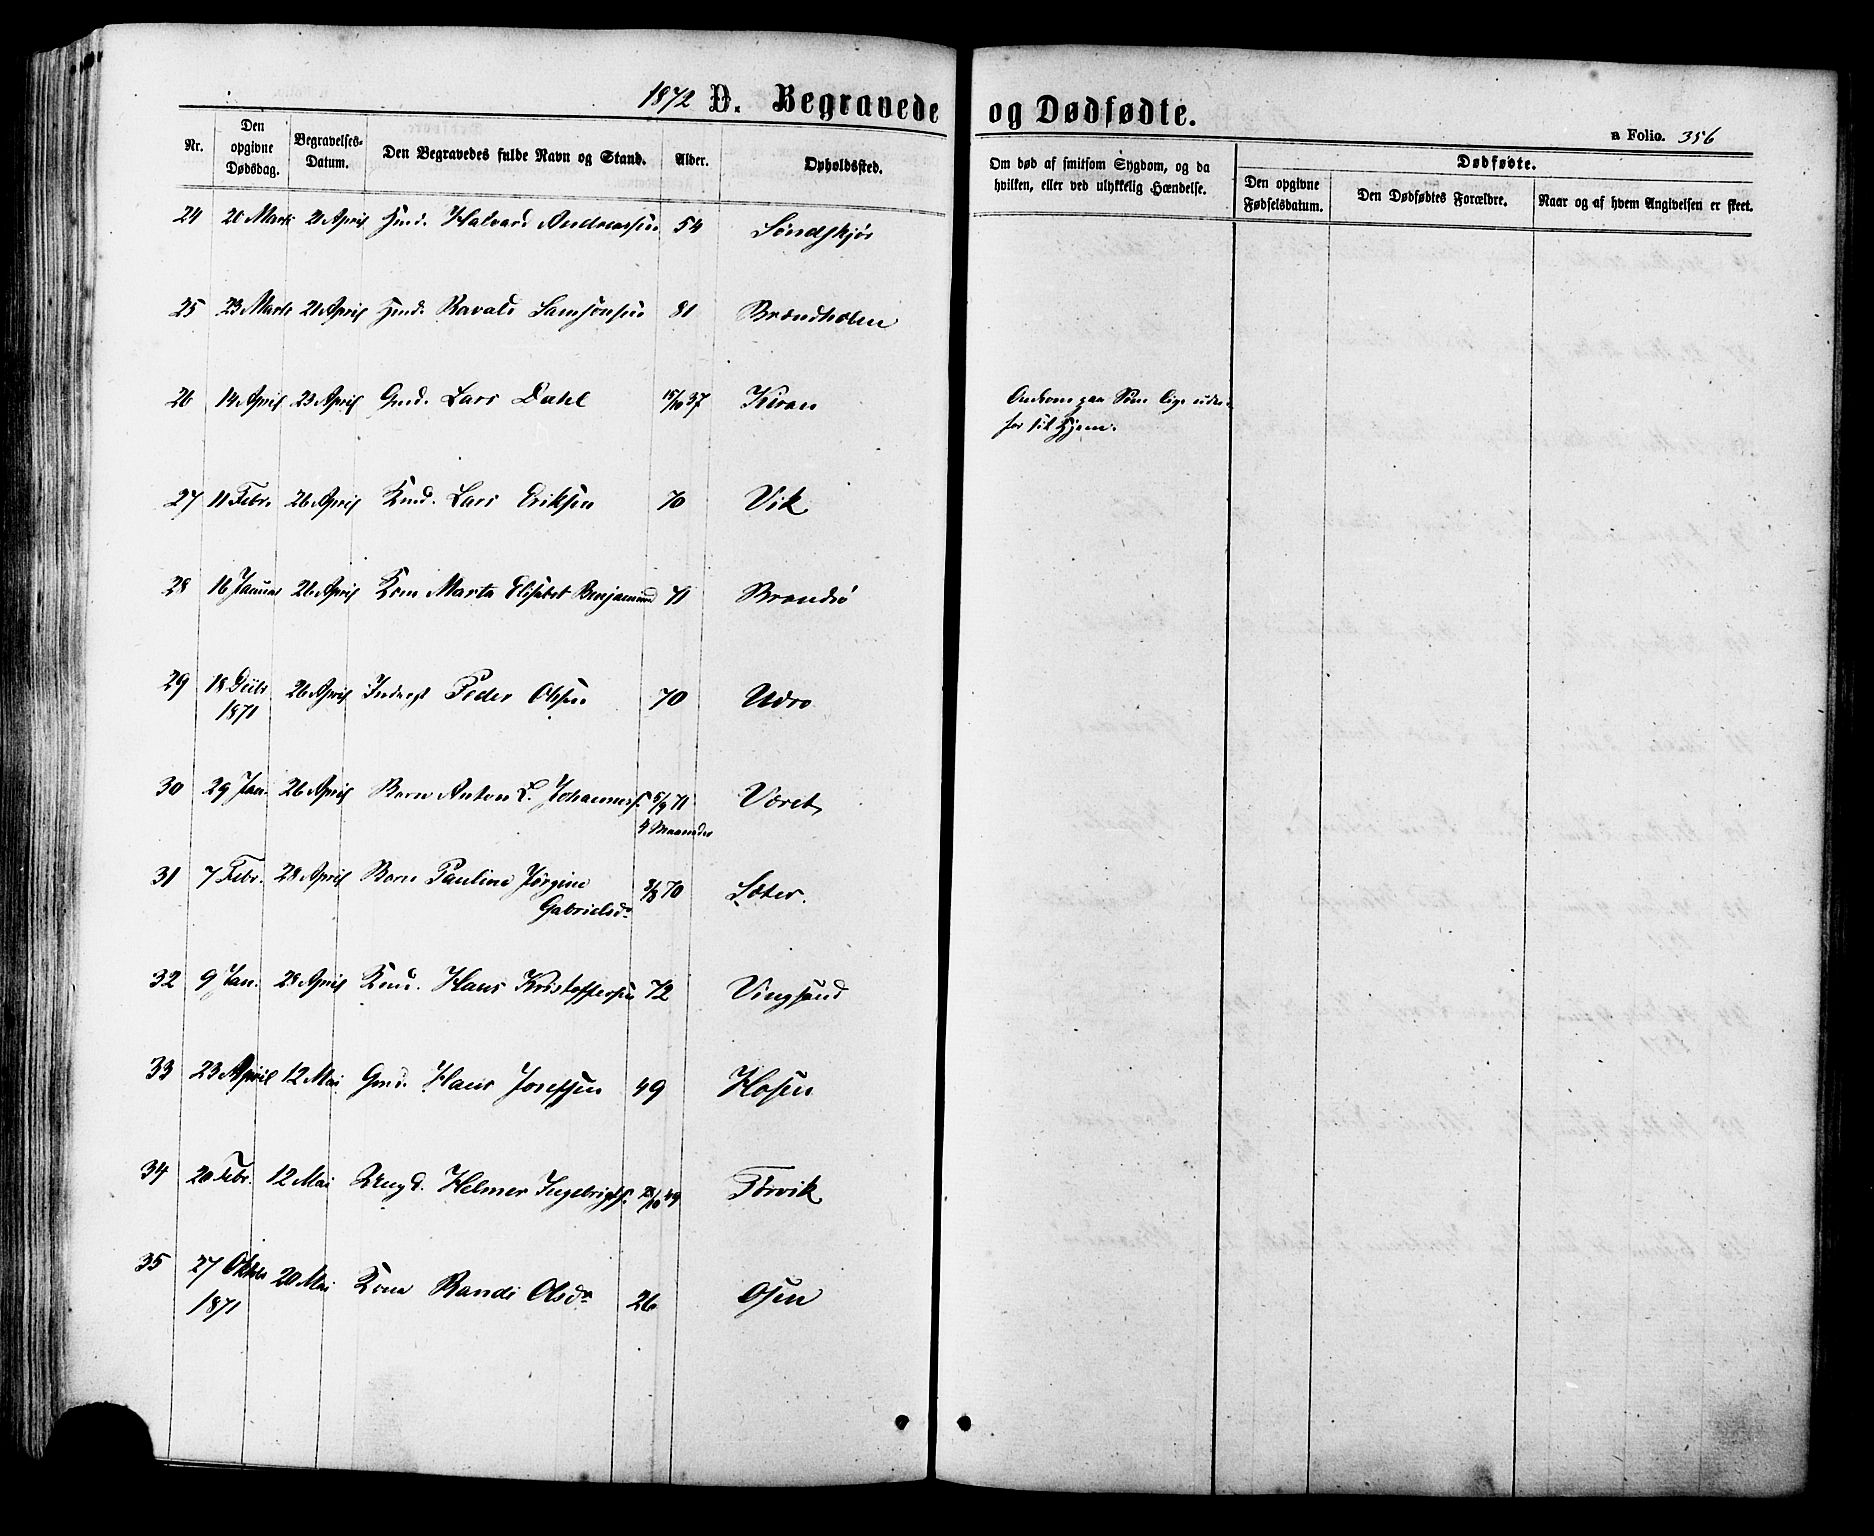 1872 D. Begravede og Dødfødte.
a Folio. 356
Nr. Den opgivne Dødsdag. Begravelses-Datum. Den Begravedes fulde Navn og Stand. Alder. Opholdssted. Om død af smitsom Sygdom, og da hvilken, eller ved ulykkelig Hændelse. Dødfødte.
Den opgivne Fødselsdatum. Den Dødfødtes Forældre. Naar og af hvem Angivelsen er skeet.
24 20 Marts 21 April Gmd. Halvard Andreassen 54
25 23 Marts 21 April Gmd. Ravald Samsonsen 81
26 14 April 23 April Gmd. Lars Dahl 15/10 37 Kiran Omkom paa Søen lige uden-
for sit Hjem.
27 11 Febr. 26 April Kmd. Lars Eriksen 70 Vik
28 16 Januar 26 April Kone Marta Elisabet Benjaminsd 71 Brandsø
29 18 Decbr 26 April Inderst Peder Olsen 70
1871
30 29 Jan. 26 April Barn Anton L. Johanness. 5/9 71
4 Maaneder
31 7 Febr. 28 April Barn Pauline Jørgine 70 Sæter.
Gabrielsdr
32 9 Jan. 28 April Kmd. Hans Kristoffersen 72 Vingsand
33 23 April 12 Mai Gmd. Hans Josefsen 49 Hosen
34 20 Febr. 12 Mai Ungd. Helmer Ingebrigts. 49 Tørvik
35 27 Oktober 20 Mai Kone Randi Olsdr 26 Osen
1871